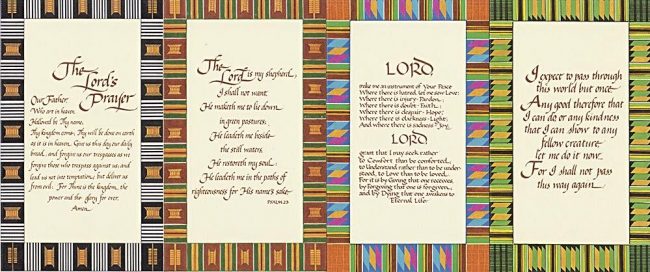 The
Lord's
Prayer
Our Father
Who art in heaven
Hallowed be Thy name.
Thy kingdom come. Thy will be done on earth
as it is in heaven. Give us this day our daily
bread, and forgive us our trespasses as we
forgive those who trespass against us and
lead us not into temptation, but deliver us
from evil. For Thine is the kingdom, the
power and the glory for ever.
Amen.
The
Lord is my shepherd,
I shall not want.
He maketh me to lie down
in green pastures.
He leadeth me beside
the still waters.
He restoreth my soul.
He leadeth me in the paths of
righteousness for His name's sake.
PSALM 23
LORD,
make me an instrument of Your Peace
Where there is hatred, let me sow Love;
Where there is injury - Pardon;
Where there is doubt - Faith;
Where there is despair - Hope;
Where there is darkness - Light;
And where there is sadness - Joy.
LORD,
grant that I may seek rather
to Comfort than be comforted,
to Understand rather than to be under-
stood, to Love than to be loved,
For it is by Giving that one receives,
by Forgiving that one is forgiven,
and by Dying that one awakens to
Eternal Life.
I expect to pass through
this world but once.
Any good therefore that
I can do or any kindness
that I can show to any
fellow creature
let me do it now.
For I shall not pass
this way again.